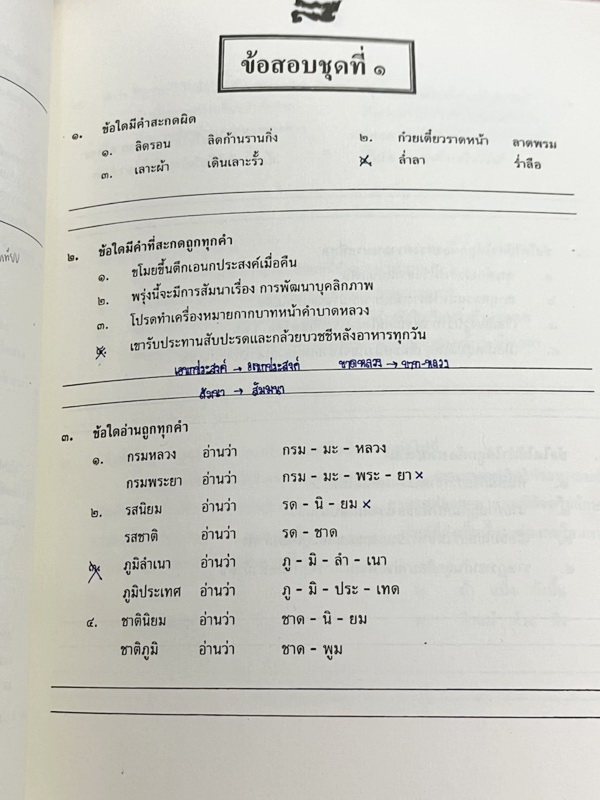 ข้อสอบชุดที่ ๑
๑. ข้อใดมีคำสะกดผิด
๑. ลิดรอน ลิดก้านรานกิ่ง ๒. ก๋วยเตี๋ยวราดหน้า ลาดพรม
๓. เลาะผ้า เดินเลาะรั้ว ๔. ล่ำลา ร่ำลือ
๒. ข้อใดมีคำที่สะกดถูกทุกคำ
๑. ขโมยขึ้นตึกเอนกประสงค์เมื่อคืน
๒. พรุ่งนี้จะมีการสัมนาเรื่อง การพัฒนาบุคลิกภาพ
๓. โปรดทำเครื่องหมายกากบาทหน้าคำบาดหลวง
๔. เขารับประทานสับปะรดและกล้วยบวชชีหลังอาหารทุกวัน
เอนกประสงค์ → อเนกประสงค์ บาดหลวง → บาทหลวง
สัมนา → สัมมนา
๓. ข้อใดอ่านถูกทุกคำ
๑. กรมหลวง อ่านว่า กรม – มะ – หลวง
กรมพระยา อ่านว่า กรม – มะ – พระ – ยา ×
๒. รสนิยม อ่านว่า รด – นิ – ยม ×
รสชาติ อ่านว่า รด – ชาด
๓. ภูมิลำเนา อ่านว่า ภู – มิ – ลำ – เนา
ภูมิประเทศ อ่านว่า ภู – มิ – ประ – เทด
๔. ชาตินิยม อ่านว่า ชาด – นิ – ยม
ชาติภูมิ อ่านว่า ชาด – พูม